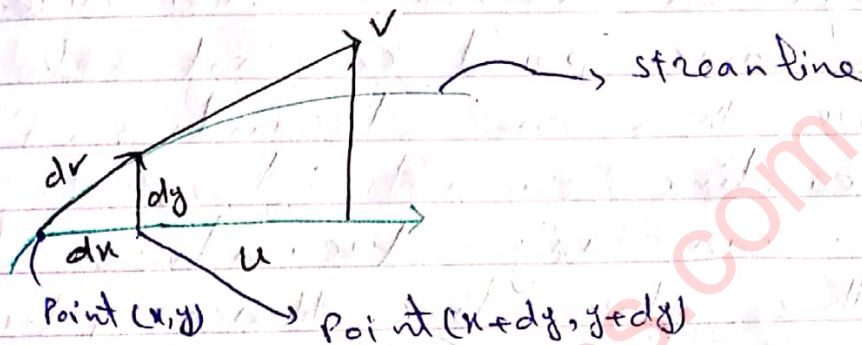 V
streamline
dr
dy
dx
u
Point (x,y)
Point (x+dy, y+dy)
s.com